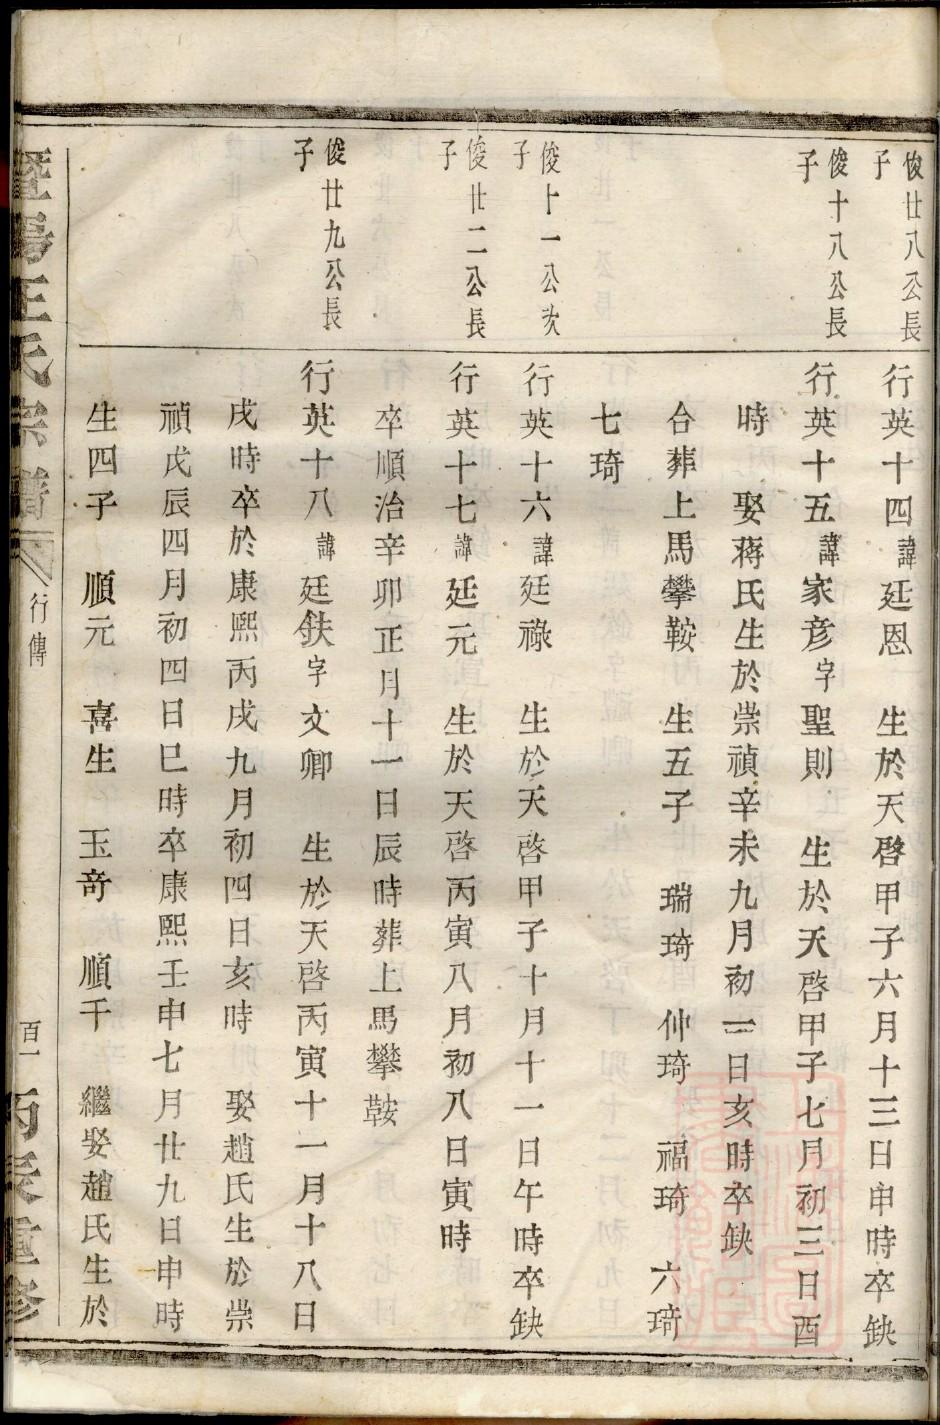 俊廿八公長子
行英十四諱廷恩　生於天啓甲子六月十三日申時卒缺
俊十八公長子
行英十五諱家彦字聖則　生於天啓甲子七月初三日酉
時　娶蒋氏生於崇禎辛未九月初三日亥時卒缺
合葬上馬攀鞍　生五子　瑞琦　仲琦　福琦　六琦
七琦
俊十一公次子
行英十六諱廷祿　生於天啓甲子十月十一日午時卒缺
俊廿二公長子
行英十七諱廷元　生於天啓丙寅八月初八日寅時
卒順治辛卯正月十一日辰時葬上馬攀鞍
俊廿九公長子
行英十八諱廷鈇字文卿　生於天啓丙寅十一月十八日
戌時卒於康熙丙戌九月初四日亥時　娶趙氏生於崇
禎戊辰四月初四日巳時卒康熙壬申七月廿九日申時
生四子　順元　喜生　玉奇　順千　繼娶趙氏生於
暨陽王氏宗譜　行傳　百一　丙辰重修